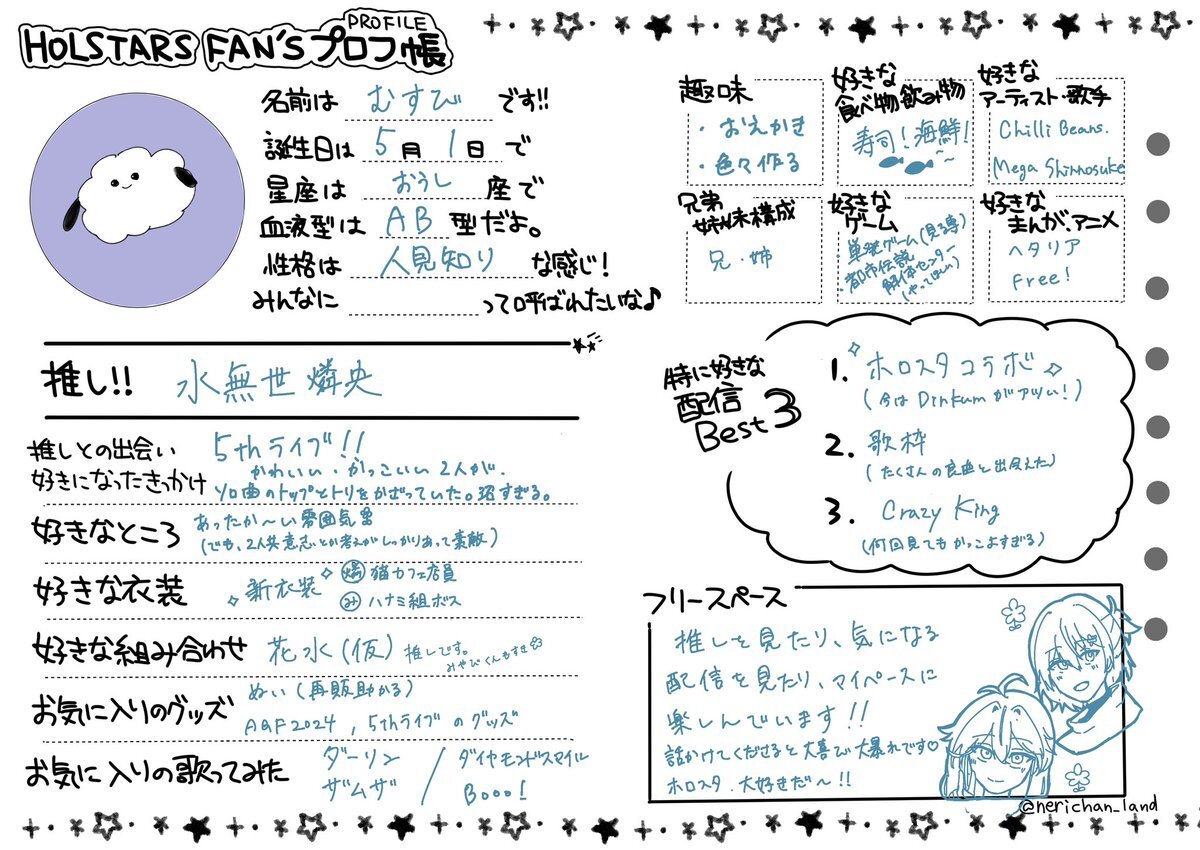 PROFILE
HOLSTARS FAN'Sプロフ帳
名前は むすび です!!
誕生日は 5月 1日 で
星座は おうし 座で
血液型は AB 型だよ。
性格は 人見知り な感じ!
みんなに って呼ばれたいな♪
推し!! 水無世 燐央
推しとの出会い
好きになったきっかけ
5thライブ!!
かわいい・かっこいい 2人が、
ソロ曲のトップとトリをかざっていた。沼すぎる。
好きなところ
あったか〜い雰囲気
(でも、2人共意志とか考えがしっかりあって素敵)
好きな衣装
新衣装
猫カフェ店員
み ハナミ組ボス
好きな組み合わせ
花水(仮) 推しです。
みやびくんもすき
お気に入りのグッズ
ぬい(再販助かる)
AGF2024, 5thライブのグッズ
お気に入りの歌ってみた
ダーリン / ダイヤモンドスマイル
ザムザ / Booo!
趣味
・おえかき
・色々作る
好きな
食べ物飲み物
寿司!海鮮!
好きな
アーティスト・歌手
Chilli Beans.
Mega Shinnosuke
兄弟
姉妹構成
兄・姉
好きな
ゲーム
・単発ゲーム(見る専)
・都市伝説
解体センター
(やってほしい)
好きな
まんが、アニメ
ヘタリア
Free!
特に好きな
配信
Best3
1. ホロスタコラボ
(今は Dinkum がアツい!)
2. 歌枠
(たくさんの良曲と出会えた)
3. Crazy King
(何回見てもかっこよすぎる)
フリースペース
推しを見たり、気になる
配信を見たり、マイペースに
楽しんでいます!!
話かけてくださると大喜び大暴れです♡
ホロスタ、大好きだ〜!!
@nerichan_land